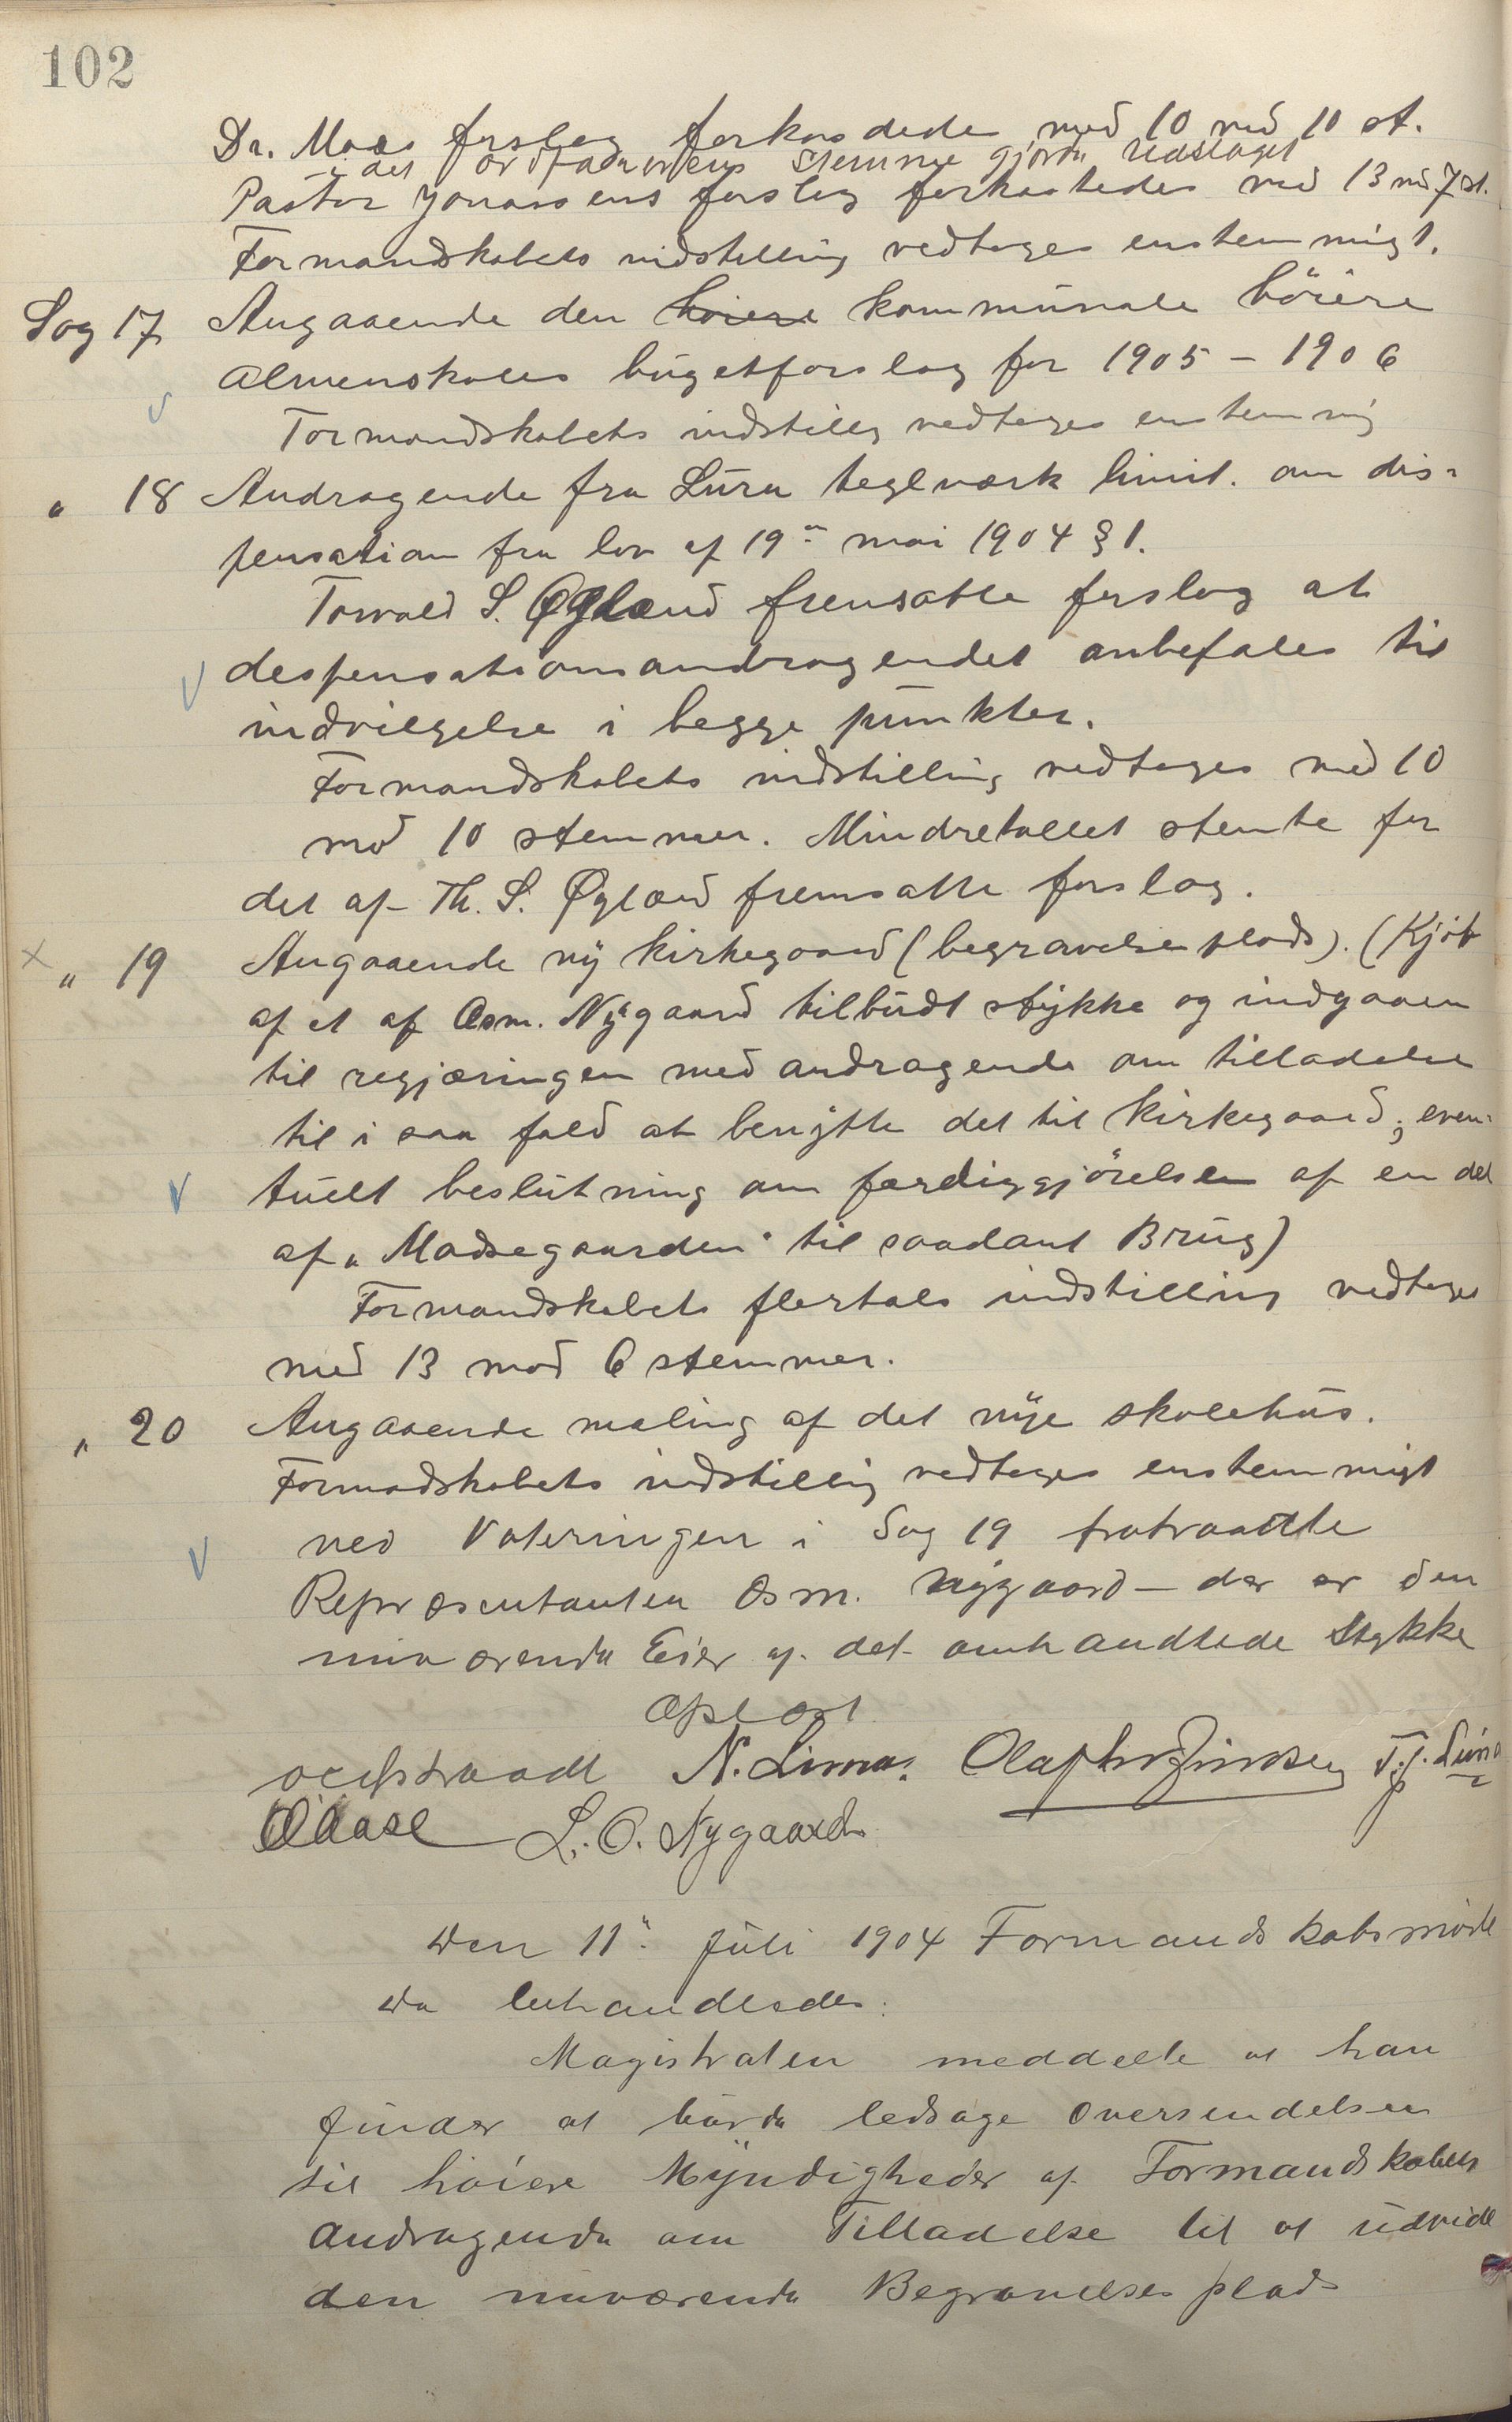 102
Dr. Maaes forslag forkasdedes med 10 mod 10 st.
i det ordførerens Stemme gjorde Udslaget
Pastor Jonassens forslag forkastedes med 13 md. 7 st.
Formandskabets indstilling vedtages enstemmigt.
Sag 17 Angaaende den høiere kommunale høiere
almenskoles bugetforslag for 1905 - 1906
Formandskabets indstillig vedtages enstemmig
" 18 Andragende fra Lura teglværk limit. om dis-
pensation fra lov af 19de mai 1904 § 1.
Torvald S. Øglænd fremsatte forslag at
despensationsandragendet anbefales til
indvilgelse i begge punkter.
Formandskabets indstilling vedtages med 10
mod 10 stemmer. Mindretallet stemte for
det af Th. S. Øglænd fremsatte forslag.
" 19 Angaaende ny kirkegaard (begravelsesplads). (Kjøb
af et af Osm. Nygaard tilbudt stykke og indgaaen
til regjæringen med andragende om tilladelse
til i saa fald at benytte det til kirkegaard; even-
tuelt beslutning om færdiggjörelsen af en del
af „Madsegaarden" til saadant Brug)
Formandskabets flertals indstilling vedtages
med 13 mod 6 stemmer.
" 20 Angaaende maling af det nye skolehus.
Formadskabets indstillig vedtages enstemmigt
ved Voteringen i Sag 19 fratraadte
Repræsentanten Osm. Nygaard - der er den
nuværende Eier af det omhandlede Stykke
Oplæst
N. Lima. T. J. Lura
O Aase L. O. Nygaard
Den 11te Juli 1904 Formandskabsmøde
da behandledes:
Magistraten meddelte at han
finder at burde ledsage Oversendelsen
til høiere Myndigheder af Formandskabets
Andragende om Tilladelse til at udvide
den nuværende Begravelsesplads